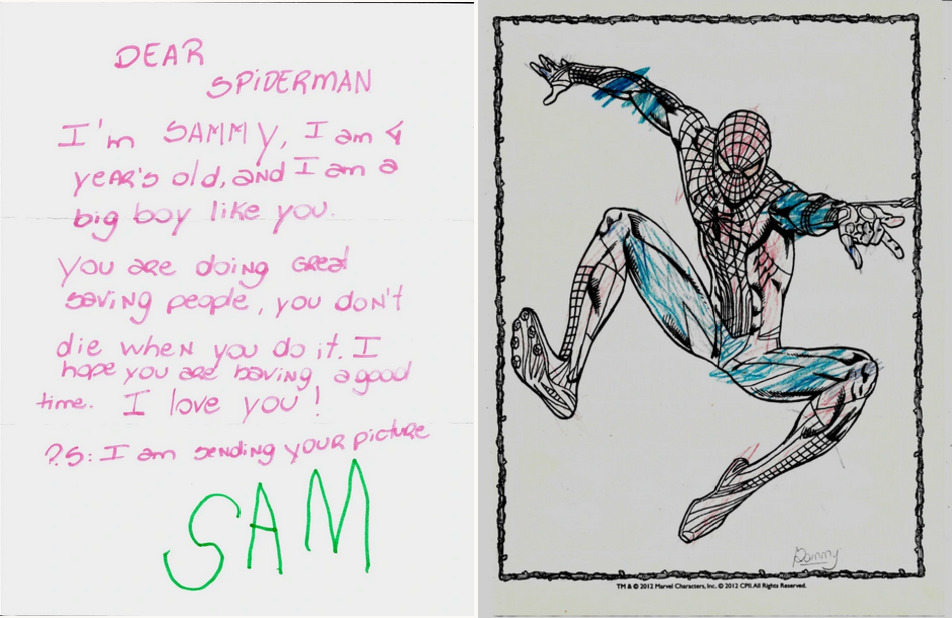 DEAR
SPiDERMAN
I'm SAMMY, I am 4
year's old, and I am a
big boy like you.
you are doing great
saving people, you don't
die when you do it. I
hope you are having a good
time. I love you!
P.S: I am sending your picture
SAM
Sammy
TM & © 2012 Marvel Characters, Inc. © 2012 CPII. All Rights Reserved.